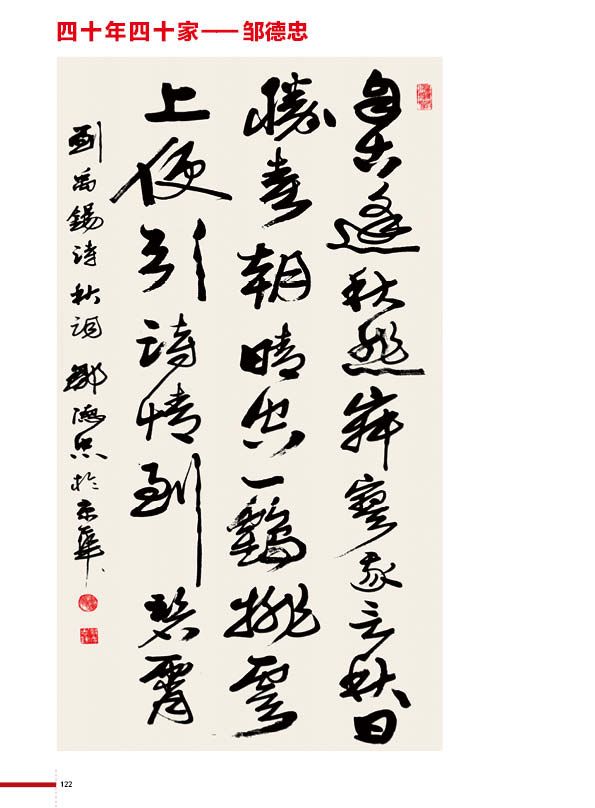 四十年四十家——邹德忠
自古逢秋悲寂寥我言秋日
勝春朝晴空一鶴排雲
上便引詩情到碧霄
劉禹錫詩秋詞 鄒德忠於京華
122